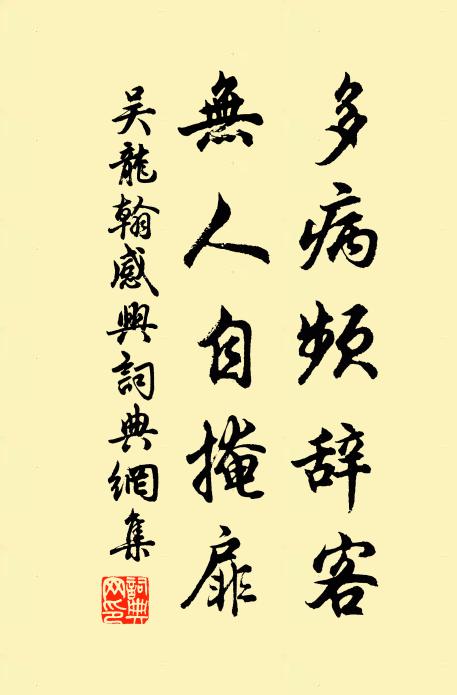 多病频辞客
無人自掩扉
吴龍翰感興詞典網集
詞典网印